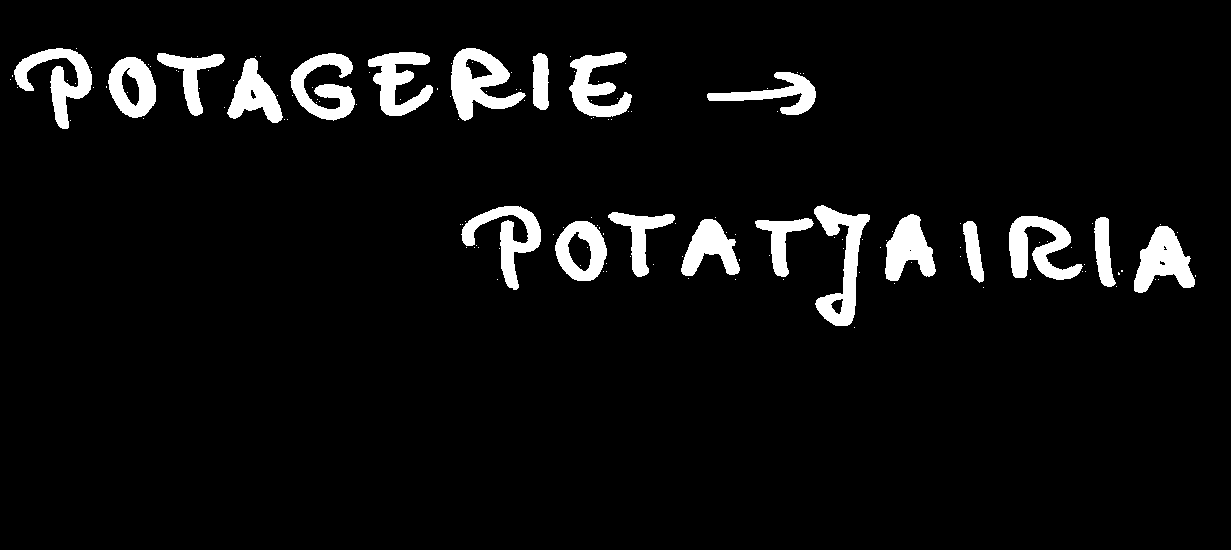 POTAGERIE →
POTATJAIRIA